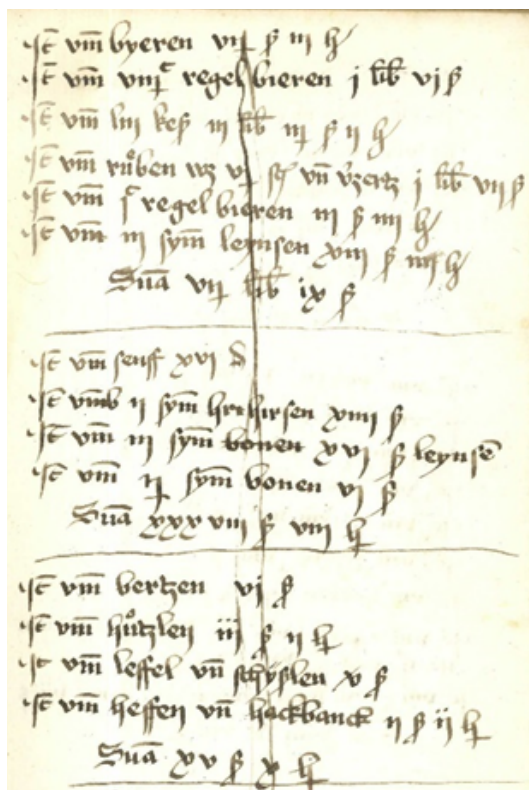 It vm̄ byeren vij ß iij h
It vm̄ viiij c regel bieren j lib vj ß
It vm̄ liij keß iij lib iij ß ij h
It vm̄ růben vz vj vn̄ j lib vij ß
It vm̄ c regel bieren iij ß iiij h
It vm̄ iij sym̄ leynsen xiiij ß iiij h
Suā vij lib ix ß
It vm̄ senff xvj d
It vmb ij sym̄ xiiij ß
It vm̄ iij sym̄ bonen xvj ß leynsē
It vm̄ ij sym̄ bonen vj ß
Suā xxxviij ß viij h
It vm̄ bertzen vj ß
It vm̄ hůtzlen iij ß ij h
It vm̄ leffel vn̄ schyslen x ß
It vm̄ heffen vn̄ hackbanck ij ß ij h
Suā xv ß x h